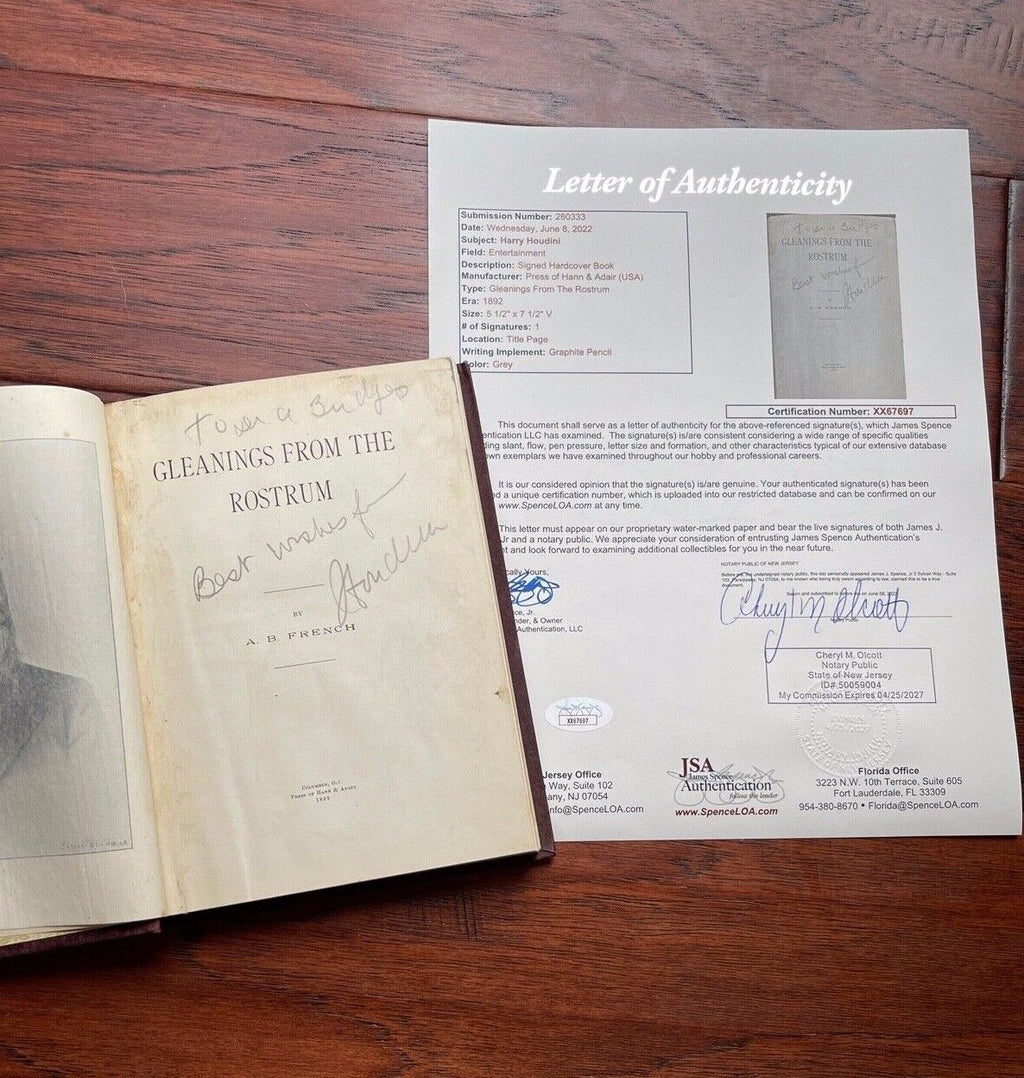 To
Bridges
GLEANINGS FROM THE
ROSTRUM
Best wishes
Houdini
BY
A. B. FRENCH
COLUMBUS, O.:
PRESS OF HANN & ADAIR
Letter of Authenticity
Submission Number: 260333
Date: Wednesday, June 8, 2022
Subject: Harry Houdini
Field: Entertainment
Description: Signed Hardcover Book
Manufacturer: Press of Hann & Adair (USA)
Type: Gleanings From The Rostrum
Era: 1892
Size: 5 1/2" x 7 1/2" V
# of Signatures: 1
Location: Title Page
Writing Implement: Graphite Pencil
olor: Grey
GLEANINGS FROM THE
ROSTRUM
Best wishes
Houdini
Certification Number: XX67697
This document shall serve as a letter of authenticity for the above-referenced signature(s), which James Spence
entication LLC has examined. The signature(s) is/are consistent considering a wide range of specific qualities
ding slant, flow, pen pressure, letter size and formation, and other characteristics typical of our extensive database
wn exemplars we have examined throughout our hobby and professional careers.
It is our considered opinion that the signature(s) is/are genuine. Your authenticated signature(s) has been
ed a unique certification number, which is uploaded into our restricted database and can be confirmed on our
www.SpenceLOA.com at any time.
This letter must appear on our proprietary water-marked paper and bear the live signatures of both James J.
Jr and a notary public. We appreciate your consideration of entrusting James Spence Authentication's
t and look forward to examining additional collectibles for you in the near future.
cally Yours,
ce, Jr.
nder, & Owner
Authentication, LLC
NOTARY PUBLIC OF NEW JERSEY
Before me, the undersigned notary public, this day personally appeared James J. Spence, Jr 2 Sylvan Way - Suite
102, Parsippany, NJ 07054, to me known who being duly sworn according to law, claimed this to be a true
document.
Sworn and subscribed to before me on June 08, 2022
Cheryl M Olcott
Cheryl M. Olcott
Notary Public
State of New Jersey
ID# 50059004
My Commission Expires 04/25/2027
XX67697
Jersey Office
Way, Suite 102
any, NJ 07054
info@SpenceLOA.com
JSA
James Spence
Authentication
follow the leader
www.SpenceLOA.com
Florida Office
3223 N.W. 10th Terrace, Suite 605
Fort Lauderdale, FL 33309
954-380-8670 • Florida@SpenceLOA.com